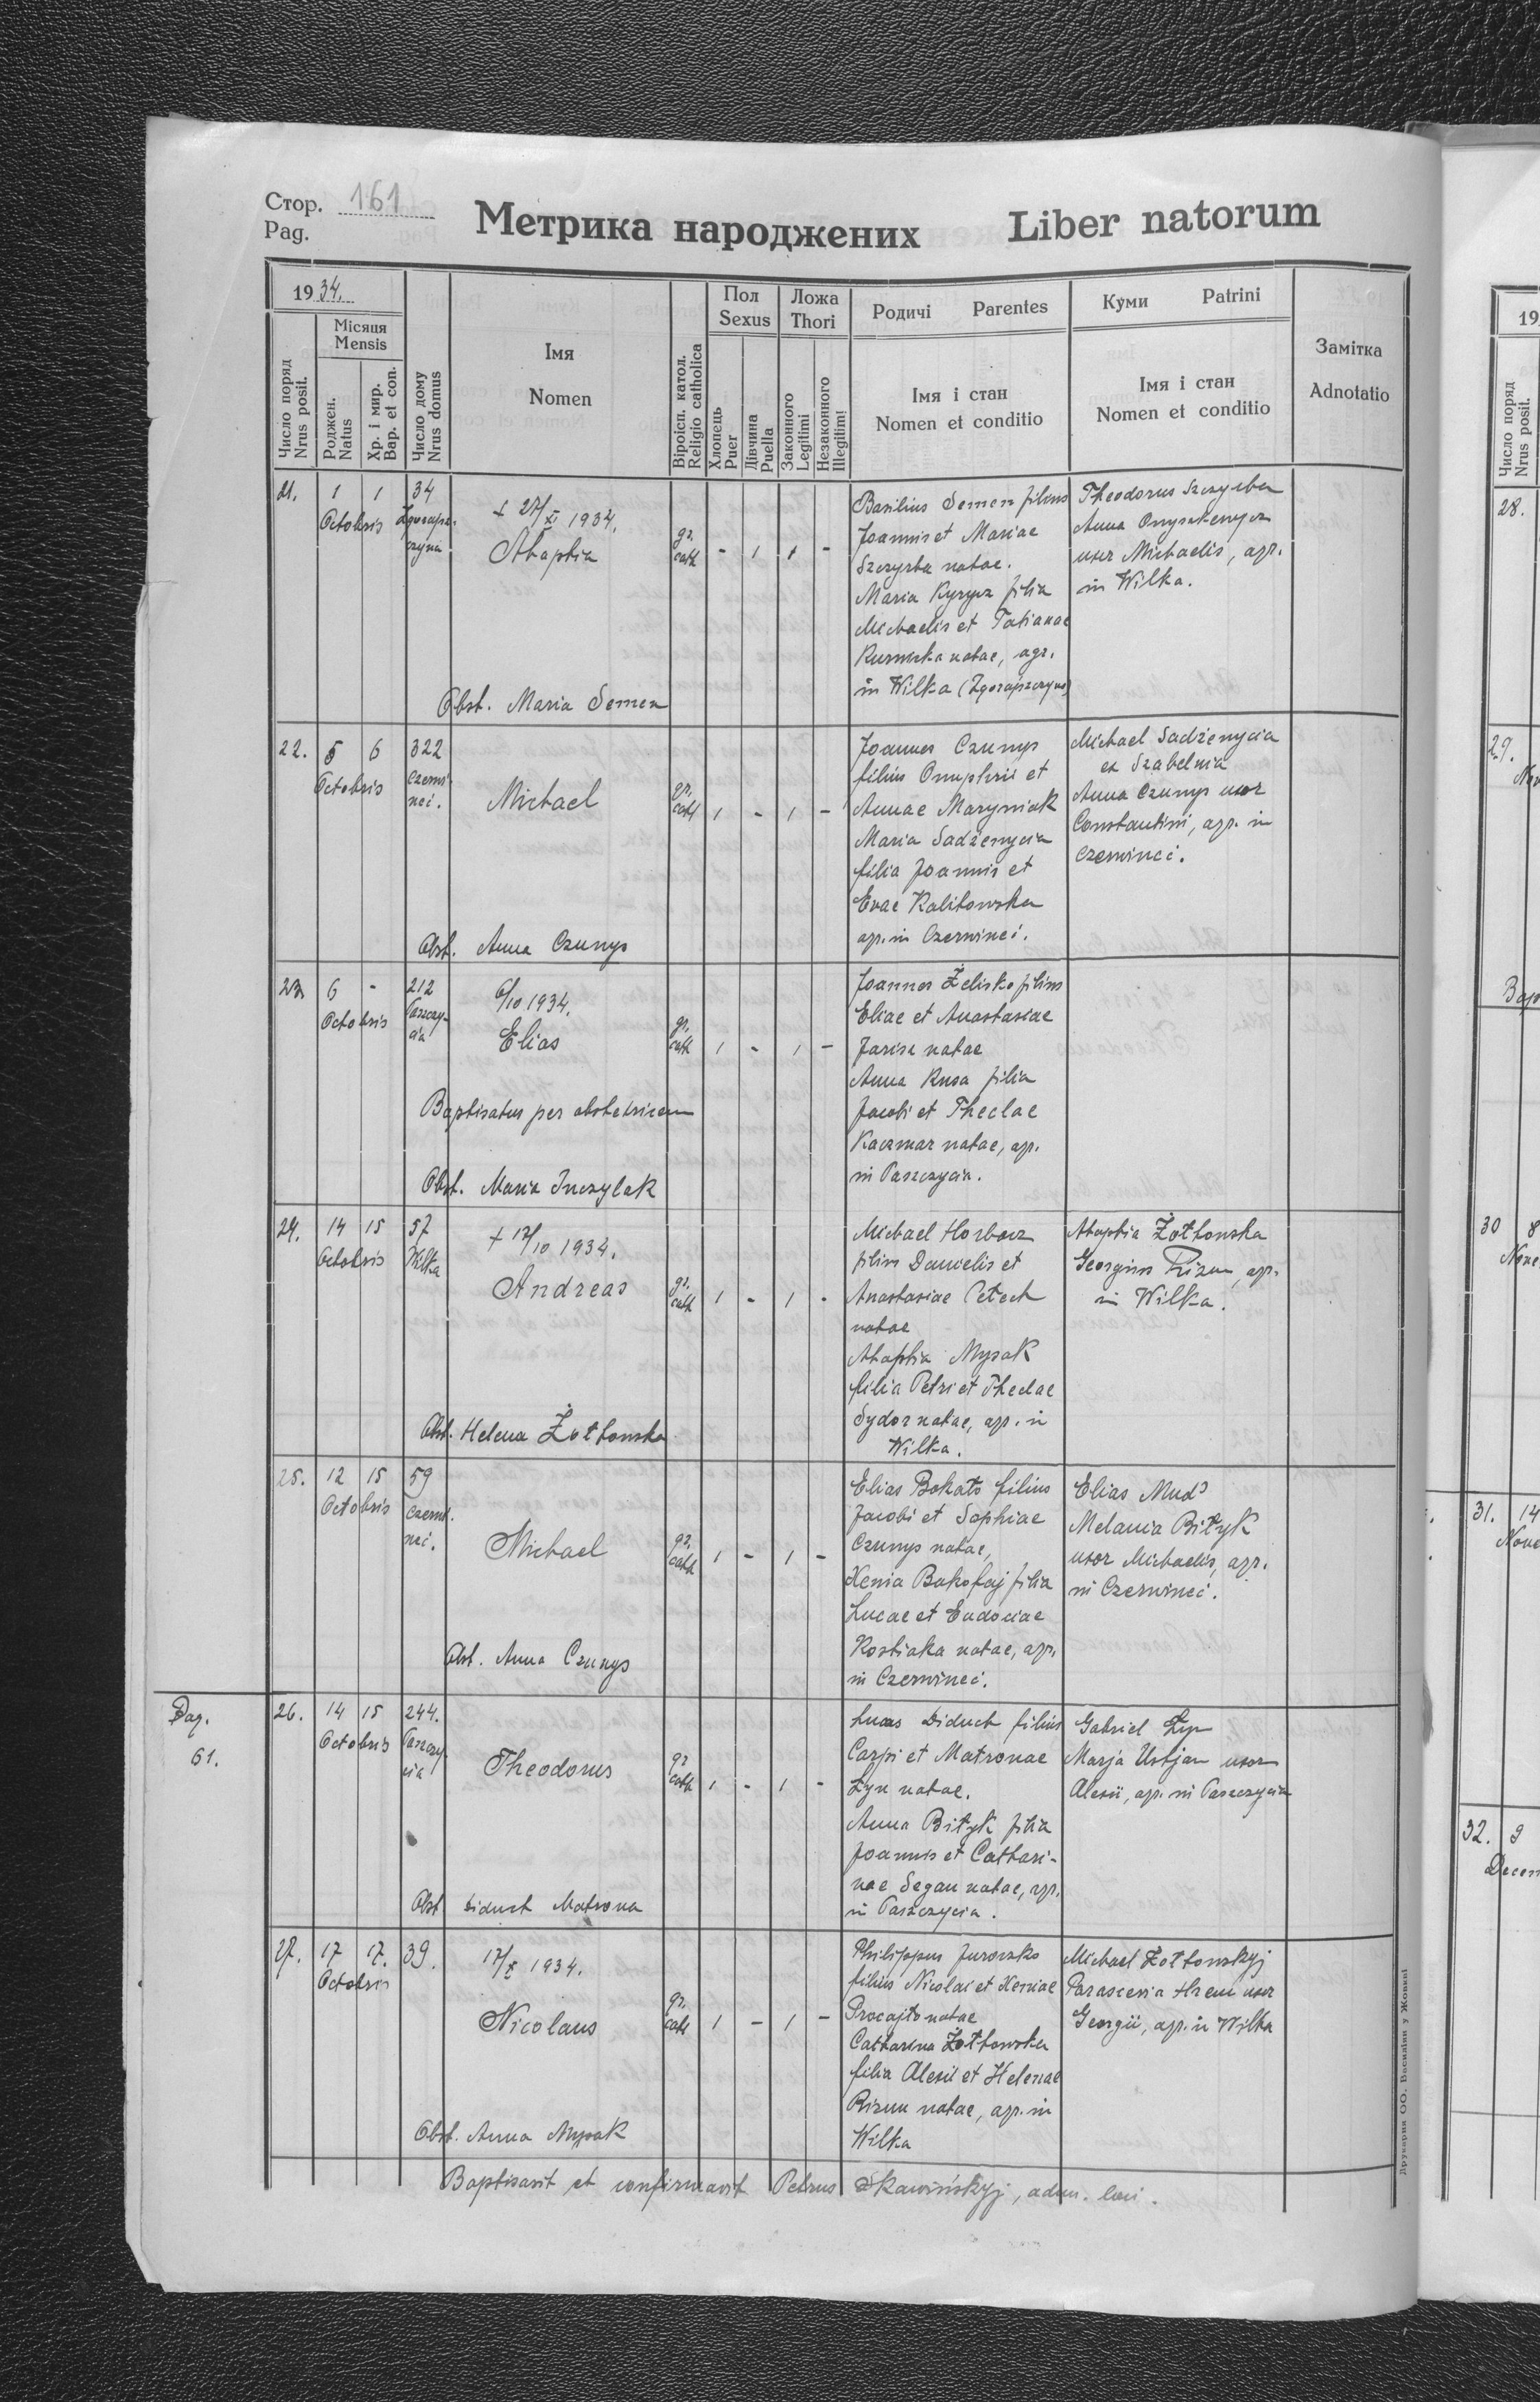 Стор. 161
Pag.
Метрика народжених Liber natorum
1934.
Число поряд
Nrus posit.
Місяця
Mensis
Роджен.
Natus
Хр. і мир.
Bap. et con.
Число дому
Nrus domus
Імя
Nomen
Віроісп. катол.
Religio catholica
Пол
Sexus
Хлопець
Puer
Дівчина
Puella
Ложа
Thori
Законного
Legitimi
Незаконного
Illegitimi
Родичі Parentes
Імя і стан
Nomen et conditio
Куми Patrini
Імя і стан
Nomen et conditio
Замітка
Adnotatio
21. 1 1 34
Octobris
+ 27/XI 1934.
Ahaphia
gr.
cath - 1 1 -
Basilius Semen filius
Joannis et Mariae
Szczyrba natae.
Maria Kyrycz filia
Michaelis et Tatianae
natae, agr.
in Wilka
Theodorus Szczyrba
Anna
uxor Michaelis, agr.
in Wilka.
Obst. Maria Semen
22. 5 6 322
Octobris
Czerwi-
neć.
Michael
gr.
cath 1 - 1 -
Joannes Czunys
filius Onuphrii et
Annae Maryniak
Maria Sadżenycia
filia Joannis et
Evae Kalitowska
agr. in Czerwineć.
Michael Sadżenycia
ex Szabelnia
Anna Czunys uxor
Constantini, agr. in
Czerwineć.
Obst. Anna Czunys
23. 6 - 212
Octobris
Parczy-
cia
6/10 1934.
Elias
gr.
cath 1 - 1 -
Joannes Żelisko filius
Eliae et Anastasiae
natae
Anna Kusa filia
Jacobi et Theclae
Kaczmar natae, agr.
in Parczycia.
Baptisatus per obstetricem
Obst. Maria Inczylak
24. 14 15 57
Octobris
Wilka
+ 17/10 1934.
Andreas
gr.
cath 1 - 1 -
Michael Horbacz
filius Danielis et
Anastasiae Petech
natae
Ahaphia Mysak
filia Petri et Theclae
Sydor natae, agr. in
Wilka.
Ahaphia Żołtowska
Georgius Rizun, agr.
in Wilka.
Obst. Helena Żołtowska
25. 12 15 59
Octobris
Czerwi-
neć.
Michael
gr.
cath 1 - 1 -
Elias Bokało filius
Jacobi et Sophiae
Czunys natae,
Xenia filia
Lucae et Eudociae
natae, agr.
in Czerwineć.
Elias Mud
Melania Bityk
uxor Michaelis, agr.
in Czerwineć.
Obst. Anna Czunys
Pag.
61.
26. 14 15 244.
Octobris
Parczy-
cia
Theodorus
gr
cath 1 - 1 -
Lucas Diduch filius
Carpi et Matronae
Łyn natae.
Anna Bityk filia
Joannis et Cathari-
nae Segan natae, agr.
in Parczycia.
Gabriel
Marja Ustjan uxor
Alexii, agr. in Parczycia
Obst Diduch Matrona
27. 17 17. 39.
Octobris
17/X 1934.
Nicolaus
gr.
cath 1 - 1 -
Philippus
filius Nicolai et Xeniae
natae
Catharina Żołtowska
filia Alexii et Helenae
Rizun natae, agr. in
Wilka
Michael Żołtowskyj
Parascevia Hren uxor
Georgii, agr. in Wilka
Obst. Anna Mysak
Baptisavit et confirmavit Petrus Skawińskyj, adm. loci.
Друкарня ОО. Василіян у Жовкві
19
Число поряд
Nrus posit.
28.
29.
30 8
31. 14
32. 9